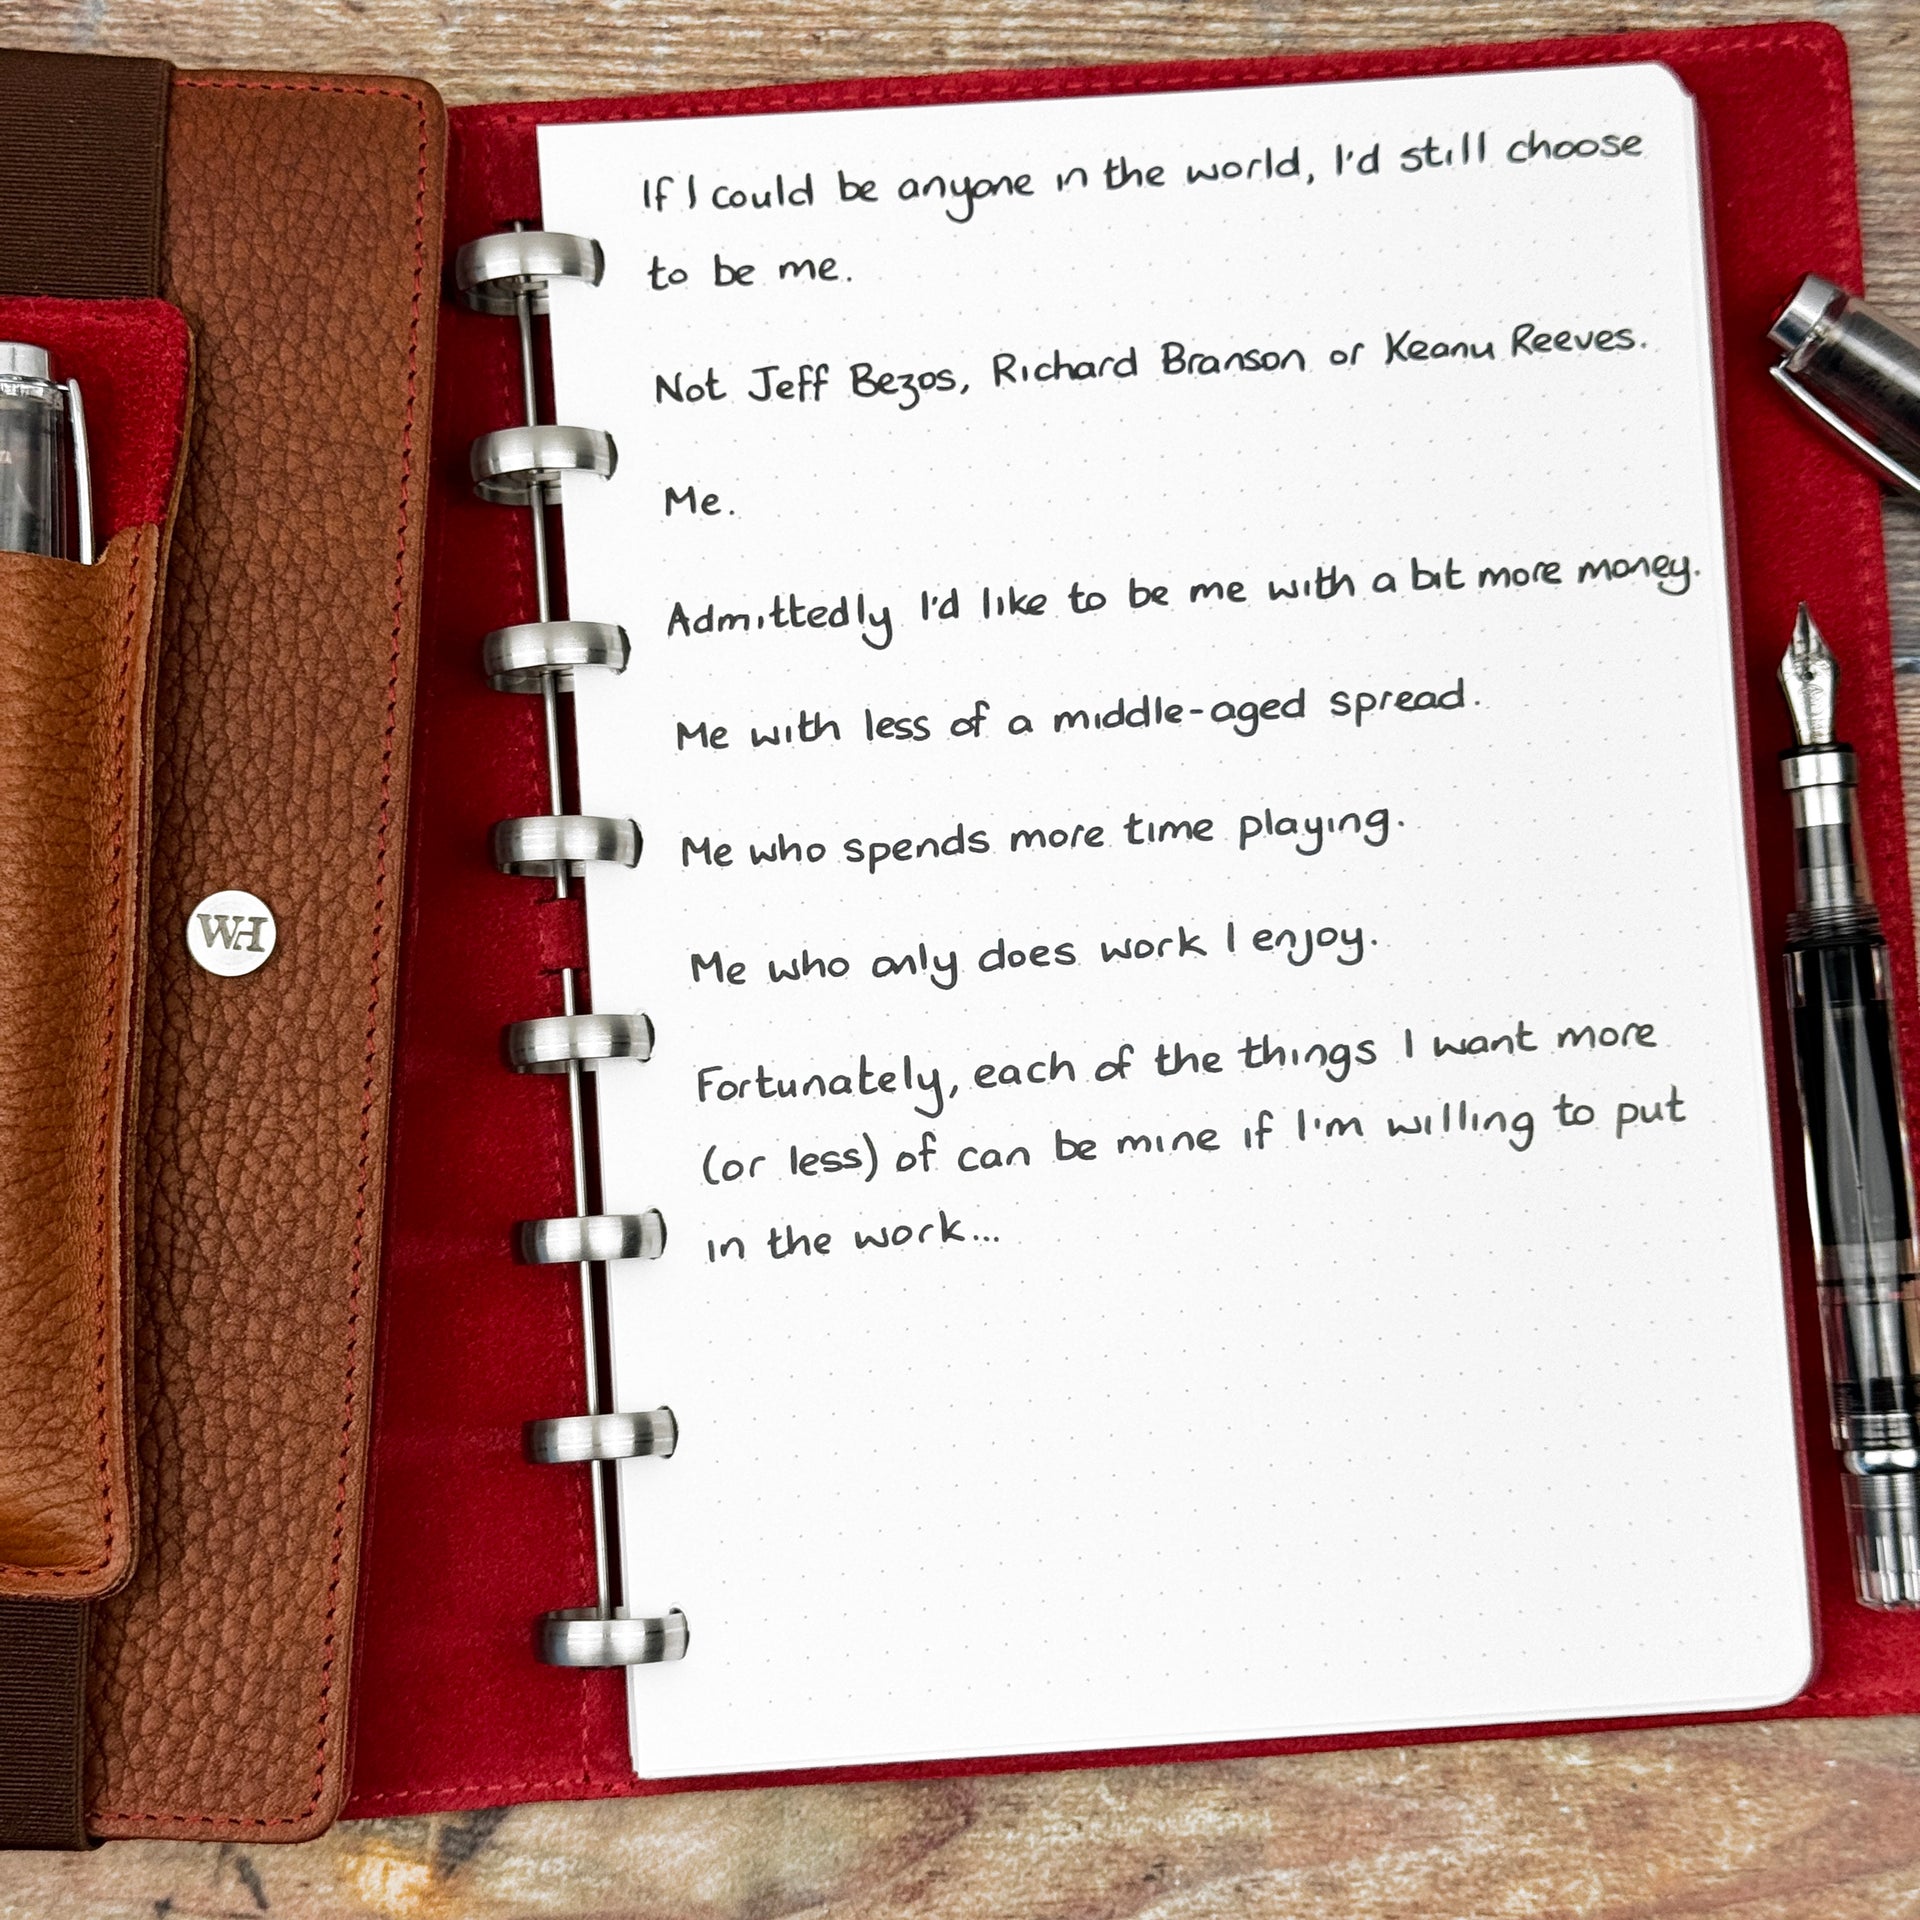 If I could be anyone in the world, I'd still choose
to be me.
Not Jeff Bezos, Richard Branson or Keanu Reeves.
Me.
Admittedly I'd like to be me with a bit more money.
Me with less of a middle-aged spread.
Me who spends more time playing.
Me who only does work I enjoy.
Fortunately, each of the things I want more
(or less) of can be mine if I'm willing to put
in the work...
WH